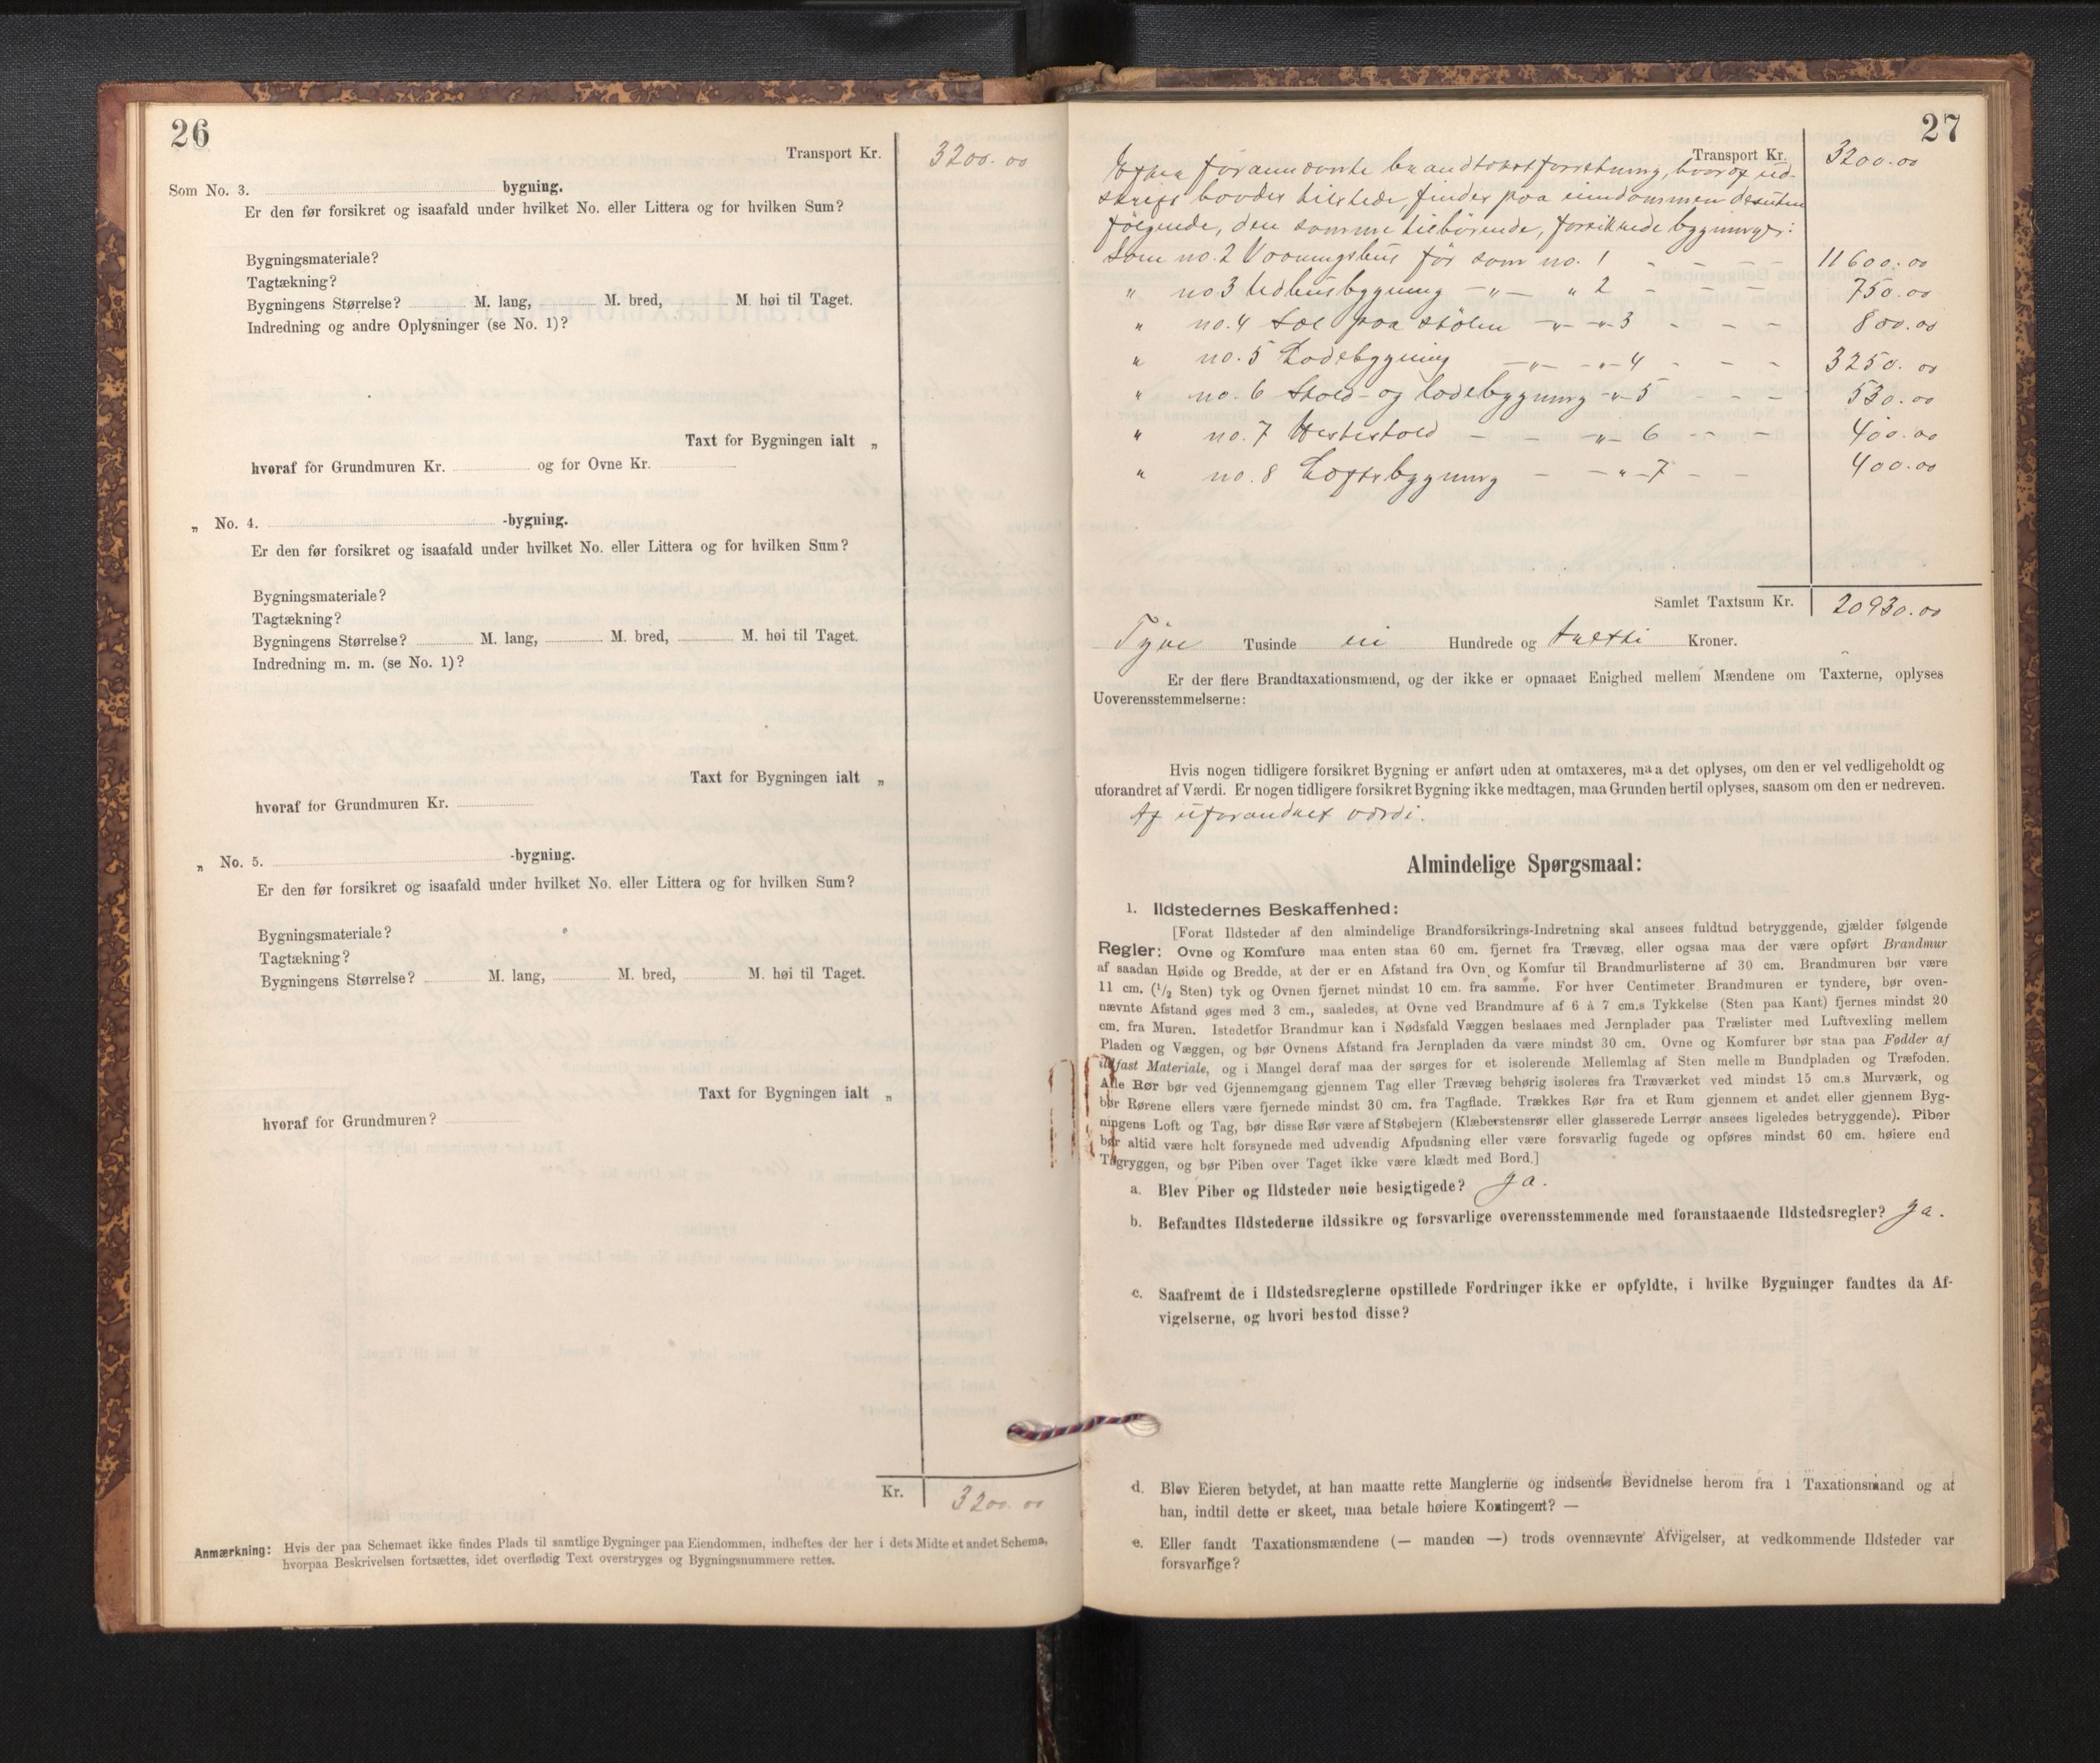 26
Transport Kr. 3200.00
Som No. 3. bygning.
Er den før forsikret og isaafald under hvilket No. eller Littera og for hvilken Sum?
Bygningsmateriale?
Tagtækning?
Bygningens Størrelse? M. lang, M. bred, M. høi til Taget.
Indredning og andre Oplysninger (se No. 1)?
Taxt for Bygningen ialt „
hvoraf for Grundmuren Kr. og for Ovne Kr.
„ No. 4. -bygning.
Er den før forsikret og isaafald under hvilket No. eller Littera og for hvilken Sum?
Bygningsmateriale?
Tagtækning?
Bygningens Størrelse? M. lang, M. bred, M. høi til Taget.
Indredning m. m. (se No. 1)?
Taxt for Bygningen ialt „
hvoraf for Grundmuren Kr.
„ No. 5. -bygning.
Er den før forsikret og isaafald under hvilket No. eller Littera og for hvilken Sum?
Bygningsmateriale?
Tagtækning?
Bygningens Størrelse? M. lang, M. bred, M. høi til Taget.
Taxt for Bygningen ialt „
hvoraf for Grundmuren?
Kr. 3200.00
Anmærkning: Hvis der paa Schemaet ikke findes Plads til samtlige Bygninger paa Eiendommen, indheftes der her i dets Midte et andet Schema,
hvorpaa Beskrivelsen fortsættes, idet overflødig Text overstryges og Bygningsnummere rettes.
27
Transport Kr. 3200.00
Efter forannævnte brandtakstforretning, hvoraf ud-
skrift havdes tilstede, findes paa eiendommen desuten
følgende, den samme tilhørende, forsikrede bygninger:
Som no. 2 Vaaningshus før som no. 1 - - - - 11600.00
" no 3 Udhusbygning -"- " 2 - - - 750.00
" no. 4 Sæl paa stølen -"- -"- 3 - - - 800.00
" no. 5 Ladebygning -"- -"- 4 - - - 3250.00
" no. 6 Stald- og ladebygning -"- 5 - - - 530.00
" no. 7 Hestestald - - -"- 6 - - - 400.00
" no. 8 Loftsbygning - -"- 7 - - 400.00
Samlet Taxtsum Kr. 20930.00
Tyve Tusinde ni Hundrede og tretti Kroner.
Er der flere Brandtaxationsmænd, og der ikke er opnaaet Enighed mellem Mændene om Taxterne, oplyses
Uoverensstemmelserne:
Hvis nogen tidligere forsikret Bygning er anført uden at omtaxeres, maa det oplyses, om den er vel vedligeholdt og
uforandret af Værdi. Er nogen tidligere forsikret Bygning ikke medtagen, maa Grunden hertil oplyses, saasom om den er nedreven.
Af uforandret værdi.
Almindelige Spørgsmaal:
1. Ildstedernes Beskaffenhed:
[Forat Ildsteder af den almindelige Brandforsikrings-Indretning skal ansees fuldtud betryggende, gjælder følgende
Regler: Ovne og Komfure maa enten staa 60 cm. fjernet fra Trævæg, eller ogsaa maa der være opført Brandmur
af saadan Høide og Bredde, at der er en Afstand fra Ovn og Komfur til Brandmurlisterne af 30 cm. Brandmuren bør være
11 cm. (1/2 Sten) tyk og Ovnen fjernet mindst 10 cm. fra samme. For hver Centimeter Brandmuren er tyndere, bør oven-
nævnte Afstand øges med 3 cm., saaledes, at Ovne ved Brandmure af 6 à 7 cm.s Tykkelse (Sten paa Kant) fjernes mindst 20
cm. fra Muren. Istedetfor Brandmur kan i Nødsfald Væggen beslaaes med Jernplader paa Trælister med Luftvexling mellem
Pladen og Væggen, og bør Ovnens Afstand fra Jernpladen da være mindst 30 cm. Ovne og Komfurer bør staa paa Fødder af
ildfast Materiale, og i Mangel deraf maa der sørges for et isolerende Mellemlag af Sten mellem Bundpladen og Træfoden.
Alle Rør bør ved Gjennemgang gjennem Tag eller Trævæg behørig isoleres fra Træværket ved mindst 15 cm.s Murværk, og
bør Rørene ellers være fjernede mindst 30 cm. fra Tagflade. Trækkes Rør fra et Rum gjennem et andet eller gjennem Byg-
ningens Loft og Tag, bør disse Rør være af Støbejern (Klæberstensrør eller glasserede Lerrør ansees ligeledes betryggende). Piber
bør altid være helt forsynede med udvendig Afpudsning eller være forsvarlig fugede og opføres mindst 60 cm. høiere end
Tagryggen, og bør Piben over Taget ikke være klædt med Bord.]
a. Blev Piber og Ildsteder nøie besigtigede? Ja.
b. Befandtes Ildstederne ildssikre og forsvarlige overensstemmende med foranstaaende Ildstedsregler? Ja.
c. Saafremt de i Ildstedsreglerne opstillede Fordringer ikke er opfyldte, i hvilke Bygninger fandtes da Af-
vigelserne, og hvori bestod disse?
d. Blev Eieren betydet, at han maatte rette Manglerne og indsende Bevidnelse herom fra 1 Taxationsmand og at
han, indtil dette er skeet, maa betale høiere Kontingent? —
e. Eller fandt Taxationsmændene (— manden —) trods ovennævnte Afvigelser, at vedkommende Ildsteder var
forsvarlige?